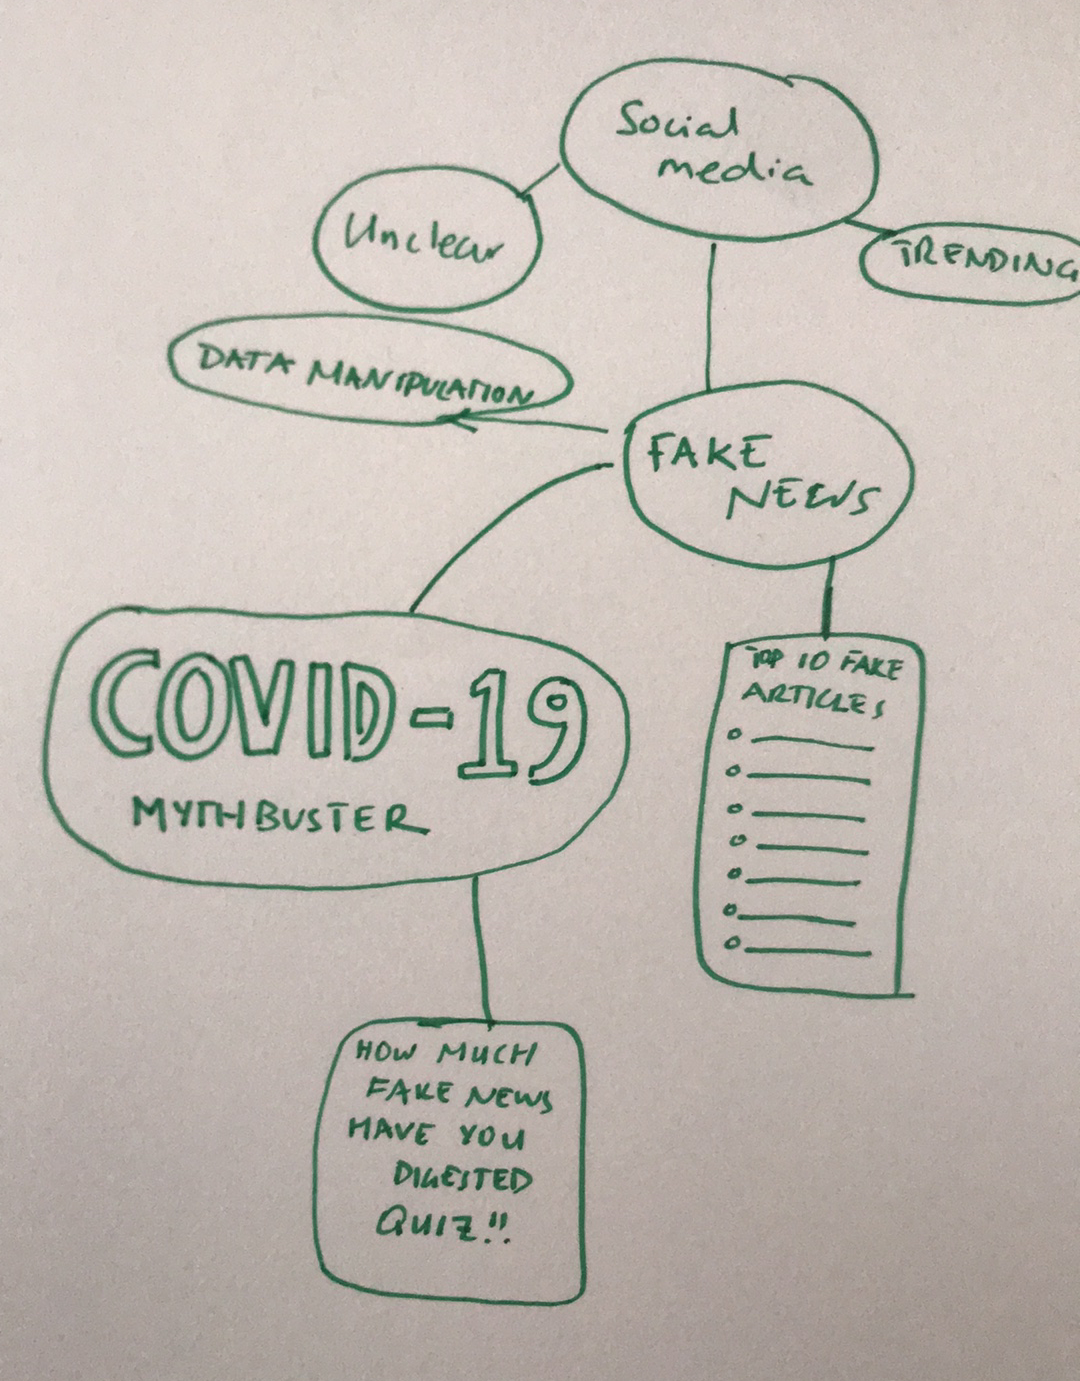 Social
media
Unclear
TRENDING
DATA MANIPULATION
FAKE
NEEWS
COVID-19
MYTHBUSTER
TOP 10 FAKE
ARTICLES
HOW MUCH
FAKE NEWS
HAVE YOU
DIGESTED
QUIZ!!